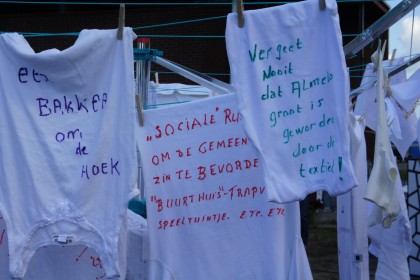 een
BAKKER
om
de
HOEK
"SOCIALE"
OM DE GEMEEN
ZIN TE BEVORDE
"BUURTHUIS"-TRAPV
SPEELTUINTJE. ETC. ETC.
Vergeet
Nooit
dat Almelo
groot is
geworden
door de
textiel!